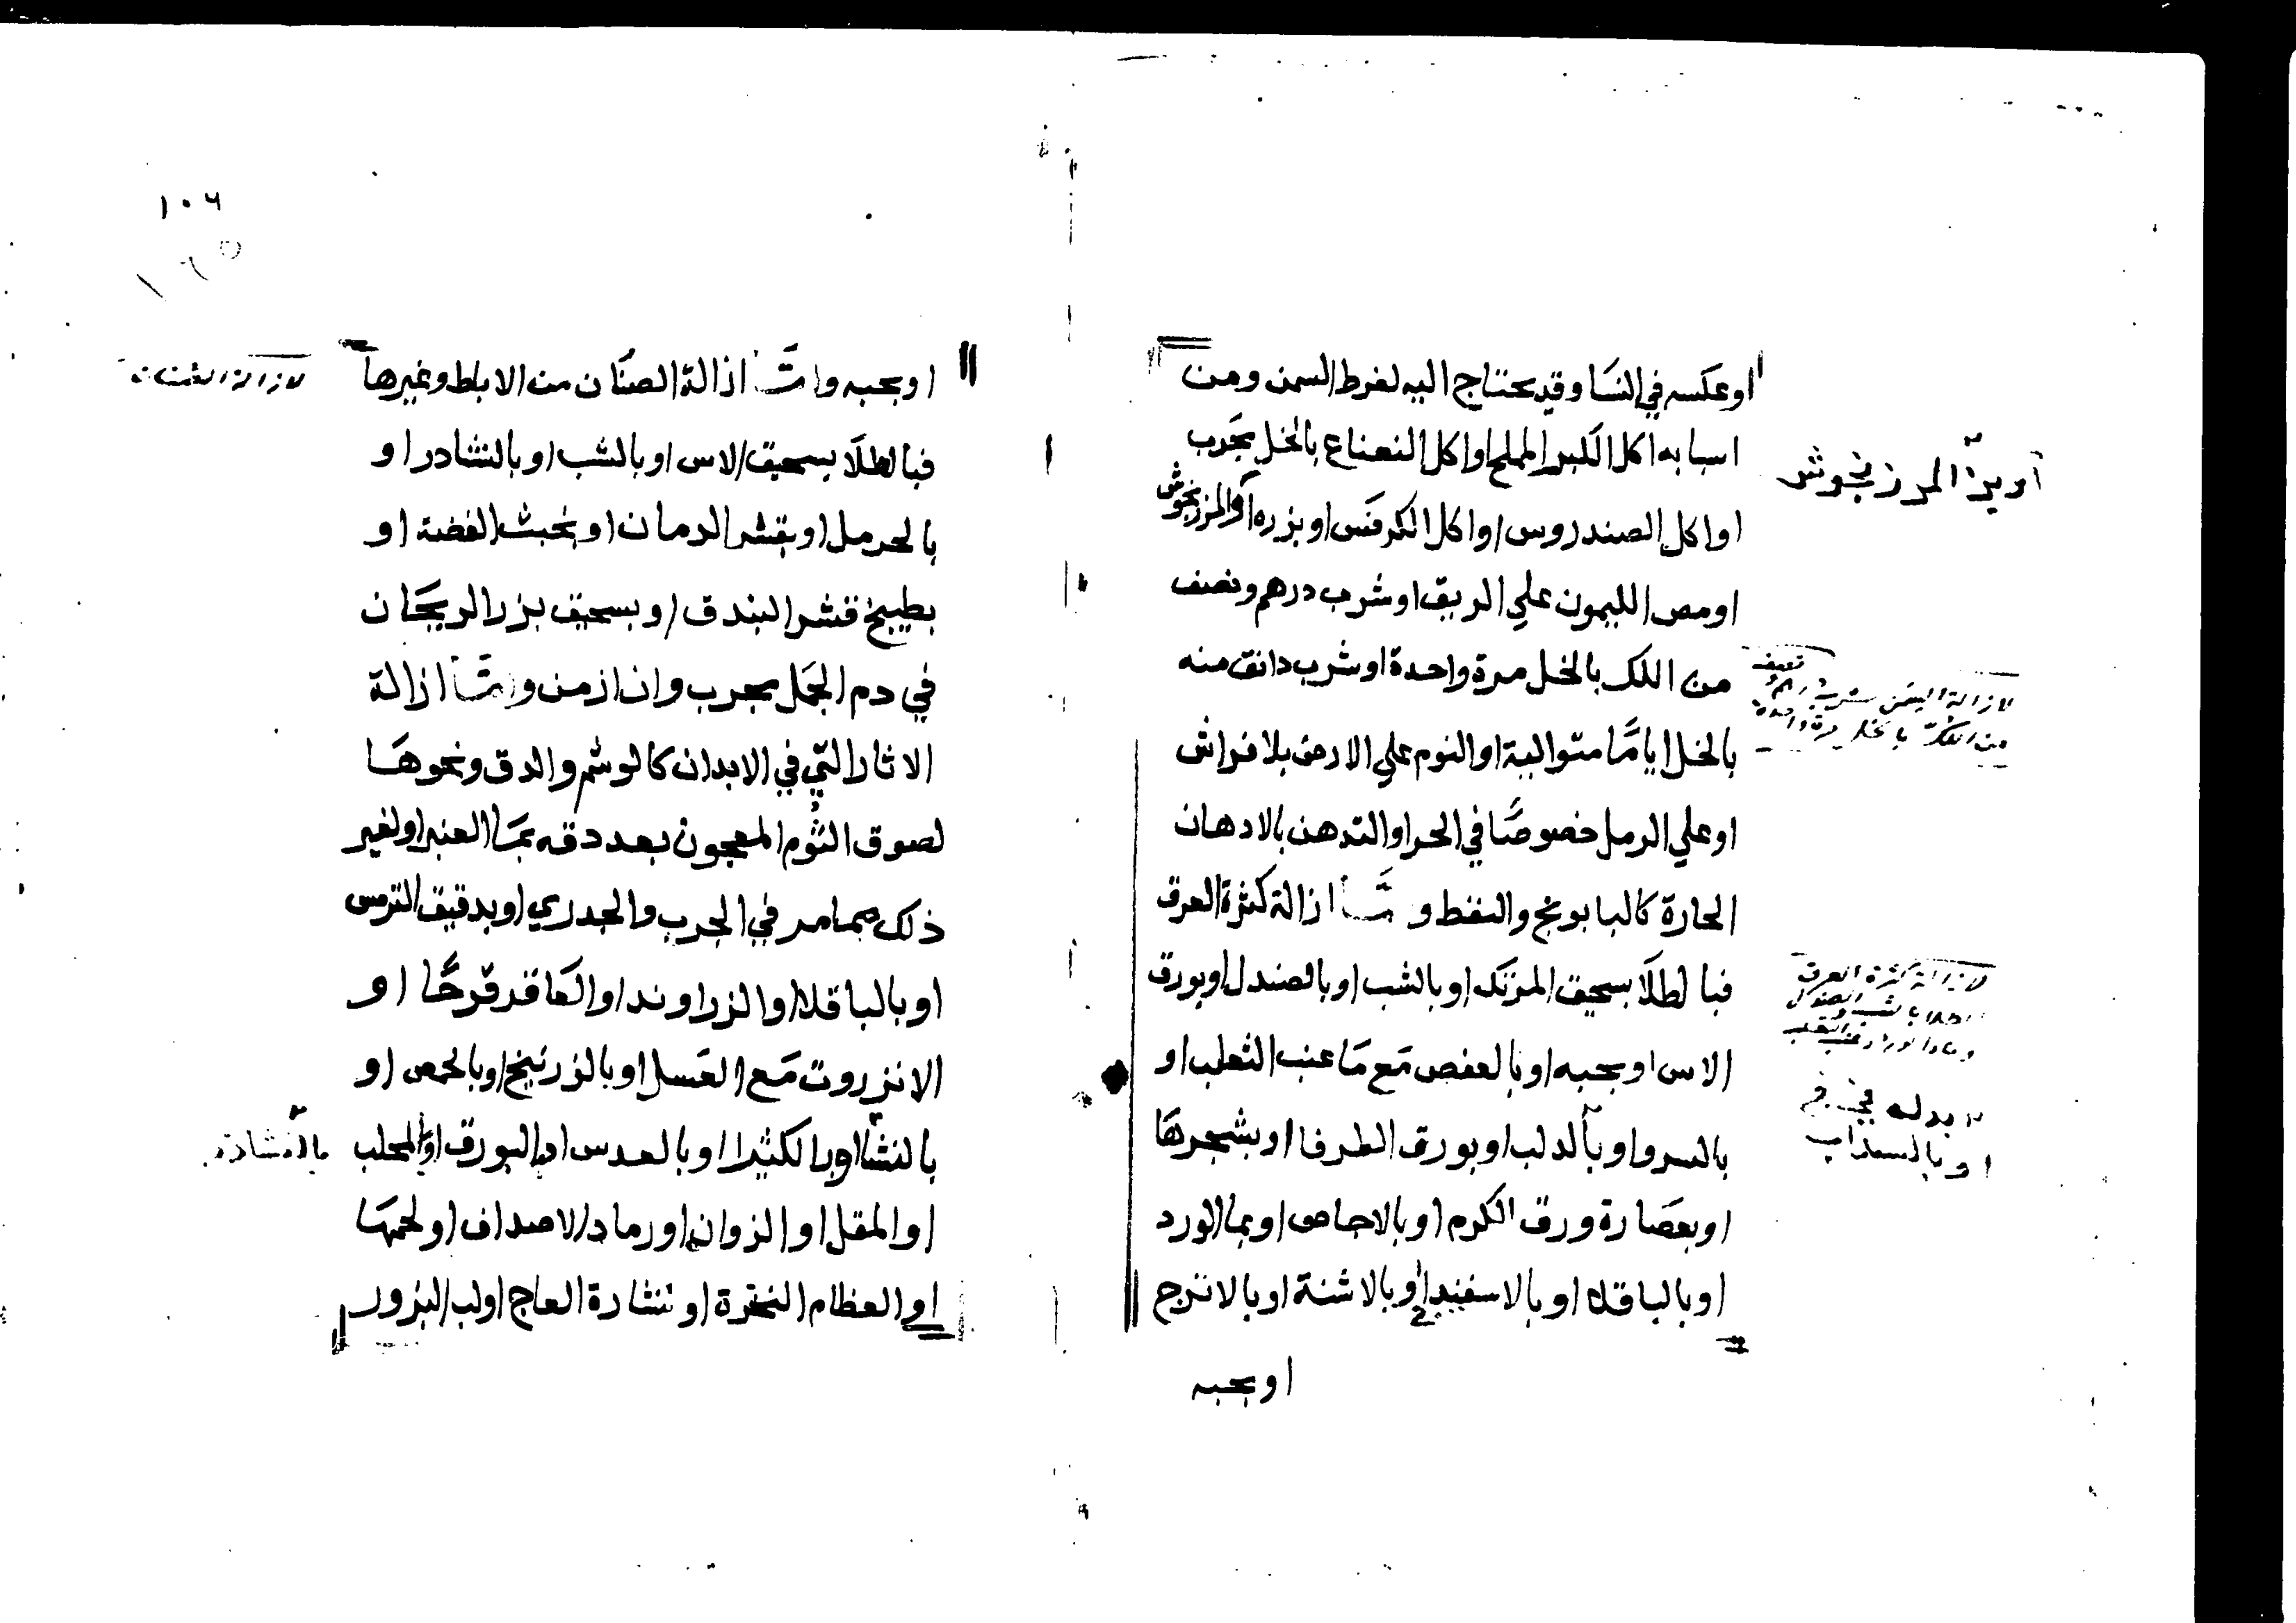 او عكسه في النسا وقد يحتاج اليه لفرط السمن ومن
اسبابه اكل الكبر المملح او اكل النعناع بالخل مجرب
او اكل الصندروس او اكل الكرفس او بزره او المرزنجوش
او مص الليمون علي الريق او شرب درهم ونصف
من اللك بالخل مرة واحدة او شرب دانق منه
بالخل اياما متوالية او النوم علي الارض بلا فراش
او علي الرمل خصوصا في الحر او التدهن بالادهان
الحارة كالبابونج والنفط و ازالة كثرة العرق
فبالطلا بسحيق المرتك او بالشب او بالصندل او بورق
الاس او بحبه او بالعفص مع ما عنب الثعلب او
بالسرو او بالدلب او بورق الطرفا او بشجرها
او بعصارة ورق الكرم او بالاجاص او بما الورد
او بالباقلا او بالاسفيداج او بالاشنة او بالاترج
او بحبه
المرزنجوش
لازالة السمن شرب درهم ونصف
من اللك بالخل مرة واحدة
لازالة كثرة العرق
بدله في
او بالسذاب
١٠٦
او بحبه واما ازالة الصنان من الاباط وغيرها
فبالطلا بسحيق الاس او بالشب او بالنشادر او
بالحرمل او بقشر الرمان او بخبث الفضة او
بطبيخ قشر البندق او بسحيق بزر الريحان
في دم الجمل مجرب وان ازمن واما ازالة
الاثار التي في الابدان كالوشم والدق ونحوها
لصوق الثوم المعجون بعد دقه بما العنبر او لغير
ذلك مما مر في الجرب والجدري او بدقيق الترمس
او بالباقلا او الزراوند او العاقر قرحا او
الانزروت مع العسل او بالزرنيخ او بالحمص او
بالنشا او بالكثيرا او بالعدس او البورق او المحلب
او المقل او الزوان او رماد الاصداف او لحمها
او العظام النخرة او نشارة العاج او لب البزور
لازالة الصنان
بالنشادر